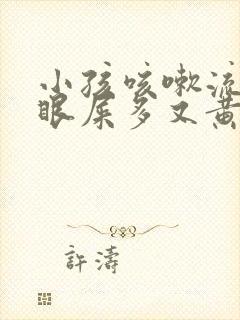 小孩咳嗽流
眼屎多又黄
許濤